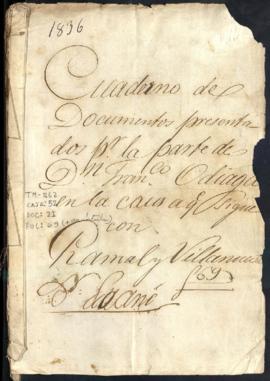 1836
Cuaderno de
Documentos presenta
dos pr. la parte de
Dn. Franco. Odiaga
en la causa q. sigue
con
Ramal y Villanueva
f 69
TM-
CAJA: 52
DOC: 21